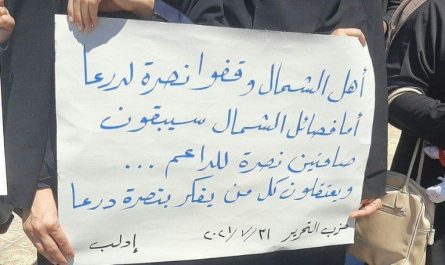 أهل الشمال وقفوا نصرة لدرعا
أما فصائل الشمال سيبقون
صامتين نصرة للداعم ...
ويعتقلون كل من يفكر بنصرة درعا
حزب التحرير ٢٠٢١/٧/٣١ إدلب